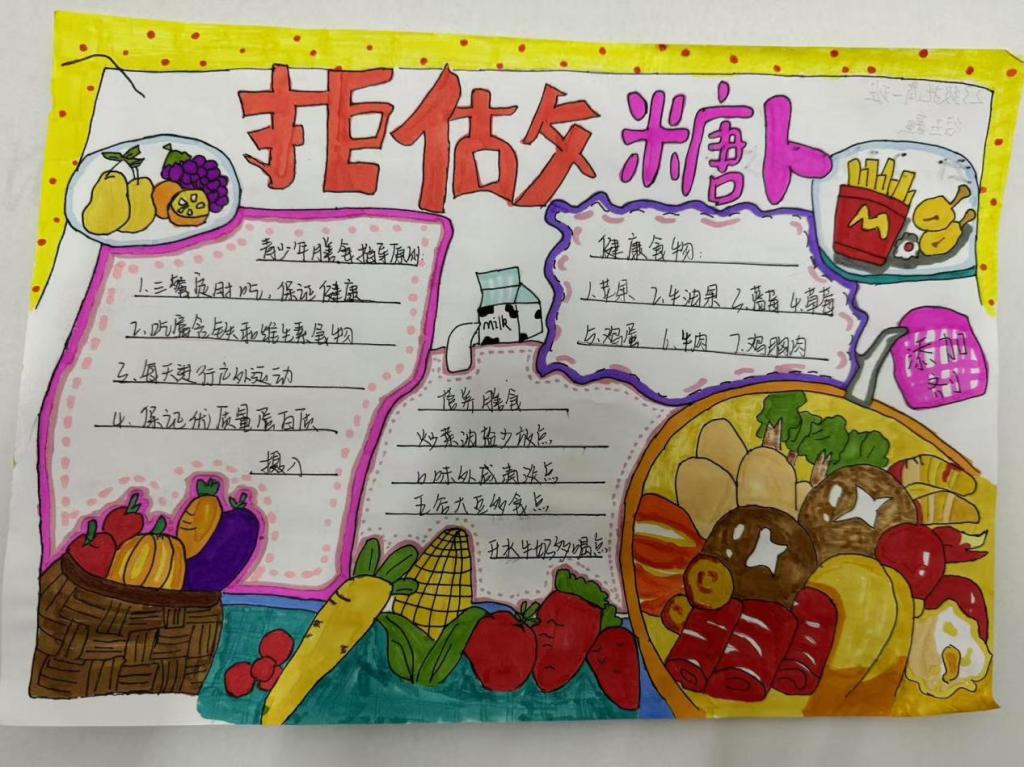 拒做糖卜
青少年膳食指导原则:
1.三餐按时吃,保证健康
2.吃富含铁和维生素食物
3.每天进行户外运动
4.保证优质量蛋白质
摄入
健康食物:
1.苹果 2.牛油果 3.蓝莓 4.草莓
5.鸡蛋 6.牛肉 7.鸡胸肉
添加
剂
milk
营养膳食
炒菜油盐少放点
口味外咸清淡点
五谷大豆多食点
开水牛奶多喝点